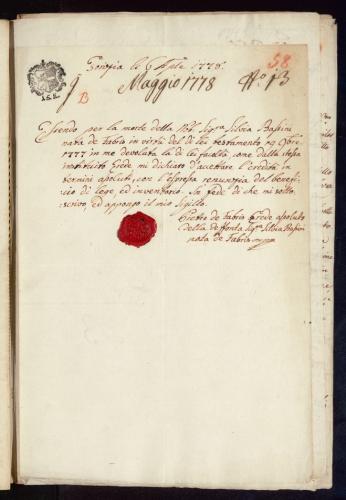 58
Gorizia li 6 Aple 1778.
Maggio 1778 No. 13
B
Essendo per la morte della Nob. Sigra Silvia Bassini
nata de Fabris in virtù del di lei testamento 19 9bre
1777 in me devoluta la di lei facoltà, come della stessa
instituito Erede mi dichiaro d'accettare l'eredità in
termini assoluti, con l'espressa renunzia del benefi-
cio di lege, ed inventario. In fede di che mi sotto-
scrivo, ed appongo il mio Sigillo.
Pietro de Fabris Erede assoluto
della defonta Sigra Silvia Bassini
nata de Fabris